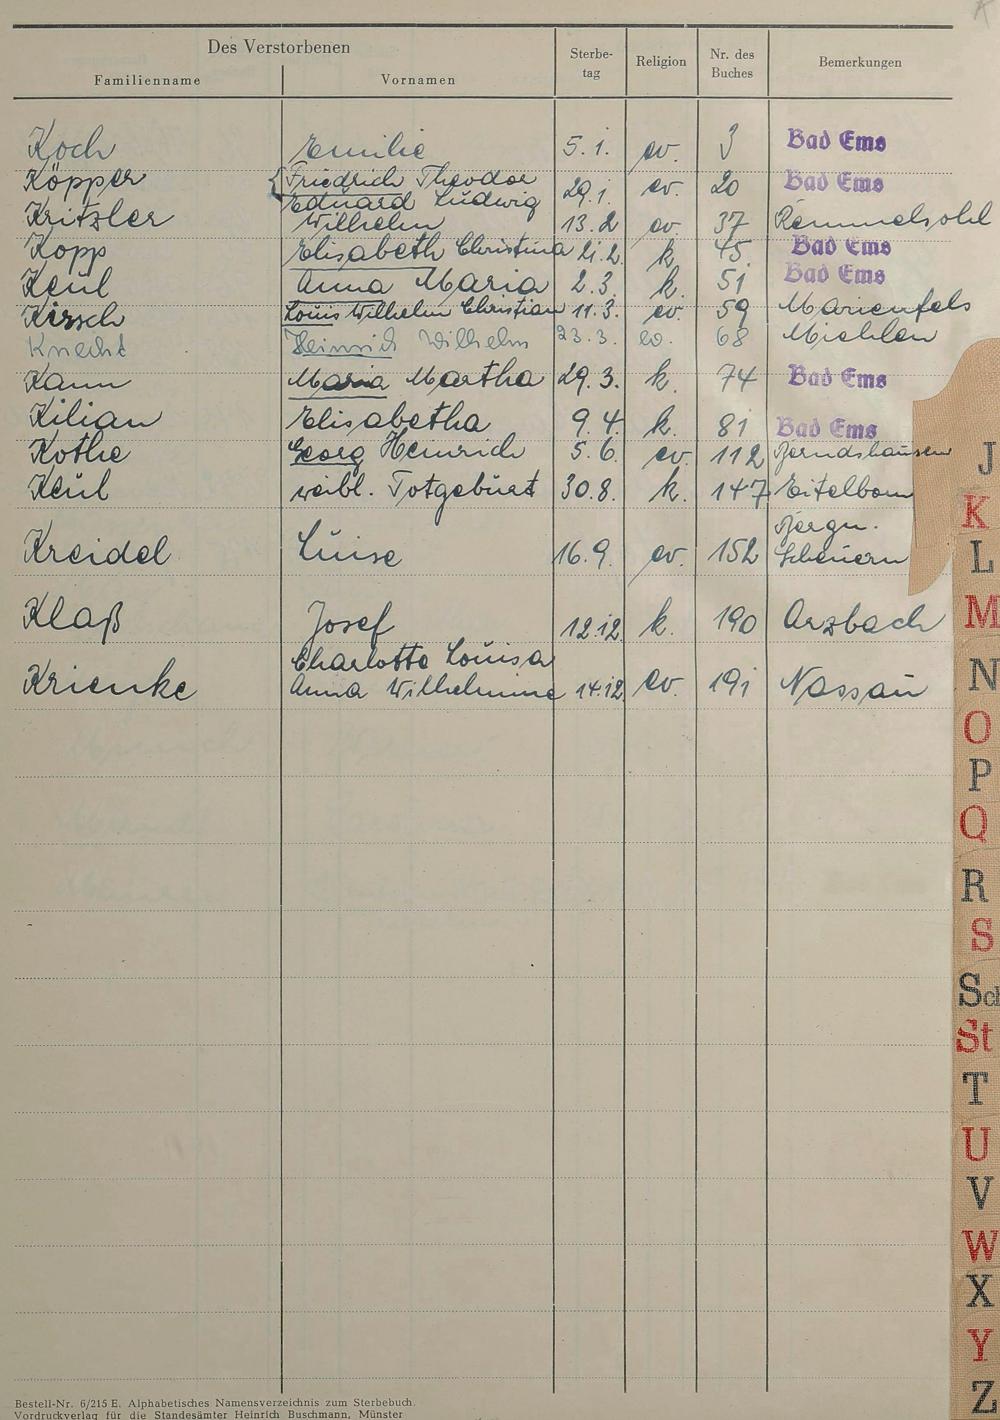 K
Des Verstorbenen
Familienname Vornamen Sterbe-
tag Religion Nr. des
Buches Bemerkungen
Koch Emilie 5.1. ev. 3 Bad Ems
Köpper { Friedrich Theodor
Eduard Ludwig 29.1. ev. 20 Bad Ems
Kritzler Wilhelm 13.2 ev. 37 Kemmelsohl
Kopp Elisabeth Christina 21.2. k. 45. Bad Ems
Keul Anna Maria 2.3. k. 51 Bad Ems
Kirsch Louis Wilhelm Christian 11.3. ev. 59 Marienfels
Knecht Heinrich Wilhelm 23.3. ev. 68 Miehlen
Kann Maria Martha 29.3. k. 74 Bad Ems
Kilian Elisabetha 9.4. k. 81 Bad Ems
Kothe Georg Heinrich 5.6. ev. 112 Berndshausen
Keul weibl. Totgeburt 30.8. k. 147 Eitelborn
Kreidel Luise 16.9. ev. 152 Bergn.
Scheuern
Klaß Josef 12.12. k. 190 Arzbach
Krienke Charlotte Louisa
Anna Wilhelmine 14.12. ev. 191 Nassau
J
K
L
M
N
O
P
Q
R
S
Sch
St
T
U
V
W
X
Y
Z
Bestell-Nr. 6/215 E. Alphabetisches Namensverzeichnis zum Sterbebuch.
Vordruckverlag für die Standesämter Heinrich Buschmann, Münster